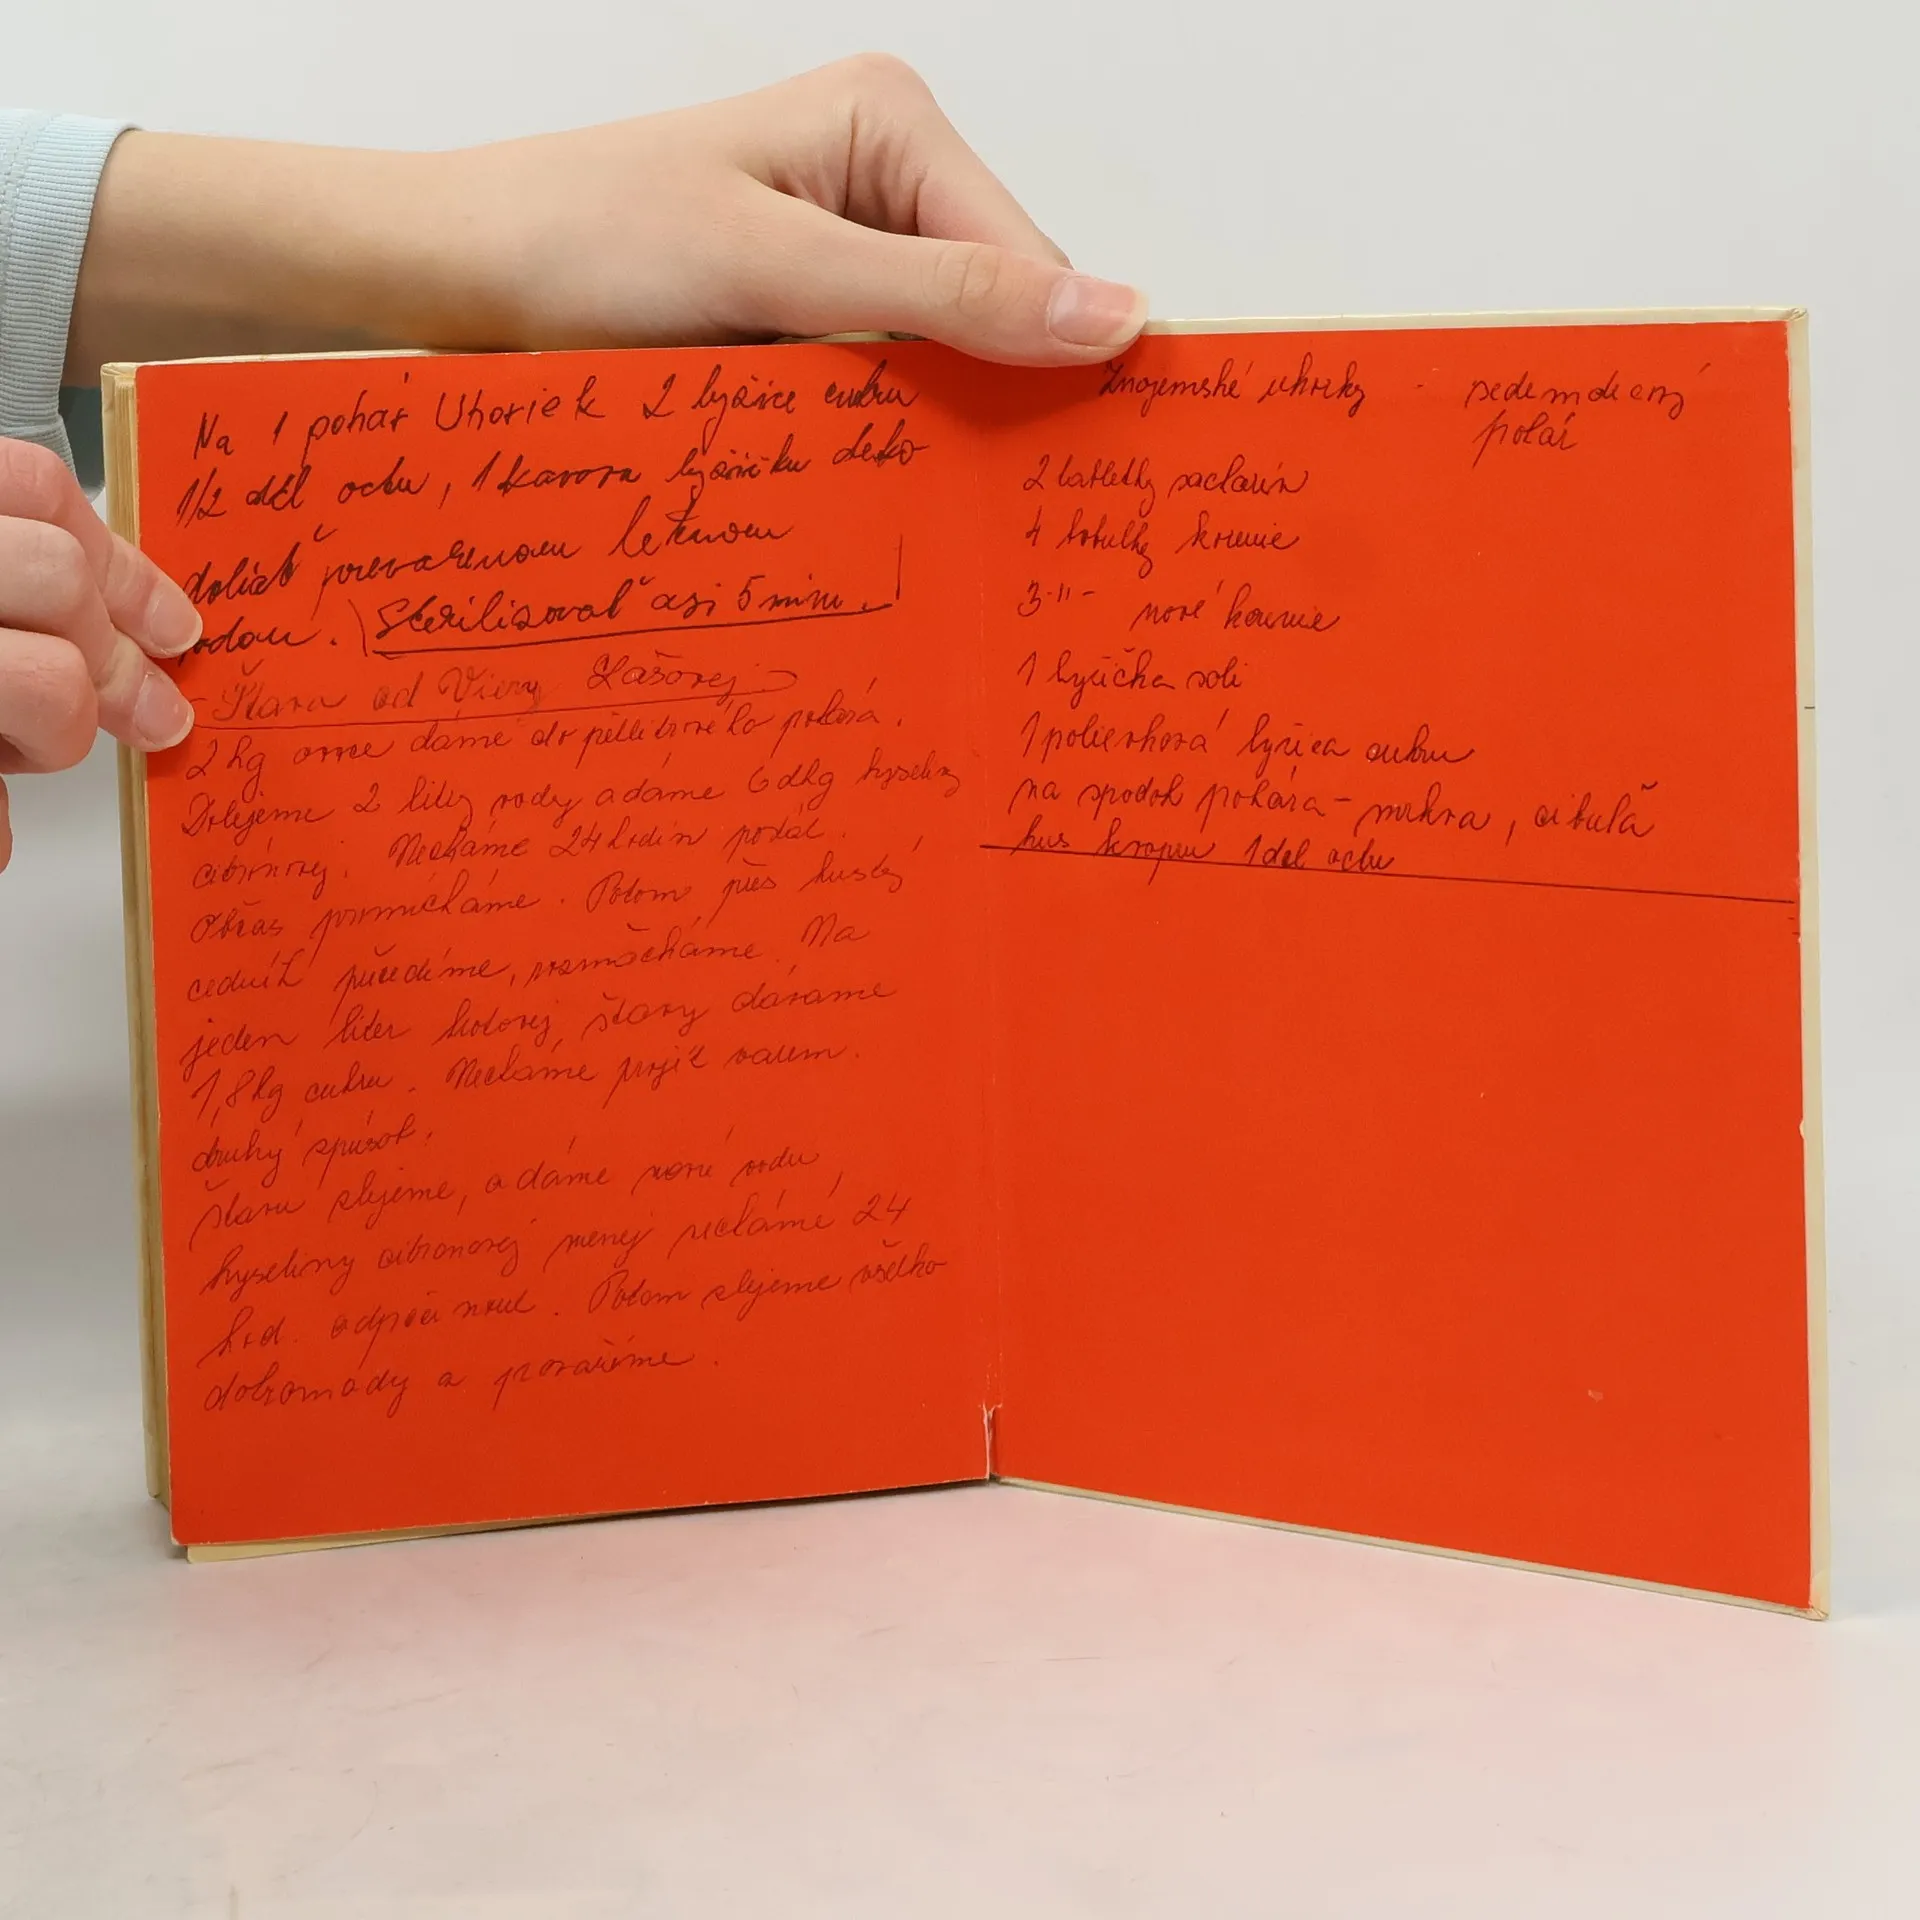 Na 1 pohár Uhoriek 2 lyžice cukru
1/2 dcl octu, 1 kavovu lyžičku deko
doliať prevarenou letnou
vodou. Sterilizovať asi 5 minu.
Šťava od Viery Lašovej
2 kg ovoce dáme do pětilitrového pohára.
Dolejeme 2 litry vody a dáme 6 dkg kyseliny
citrónovej. Necháme 24 hodin postát.
Občas promícháme. Potom přes hustý
cedník přecedíme, rozmácháme. Na
jeden liter hotovej šťavy dávame
1,8 kg cukru. Necháme projít varem.
druhý spúsob.
šťavu slejeme, a dáme novú vodu,
kyseliny citronovej menej necháme 24
hod. odpočinout. Potom slejeme všetko
dohromady a povaříme.
Znojemské uhorky - sedemdecový
pohár
2 tabletky sacharin
4 tobulky korenie
3 -11- nové korenie
1 lyžička soli
1 polievková lyžica cukru
na spodok pohára - mrkva, cibuľa
kus kropru 1 dcl octu